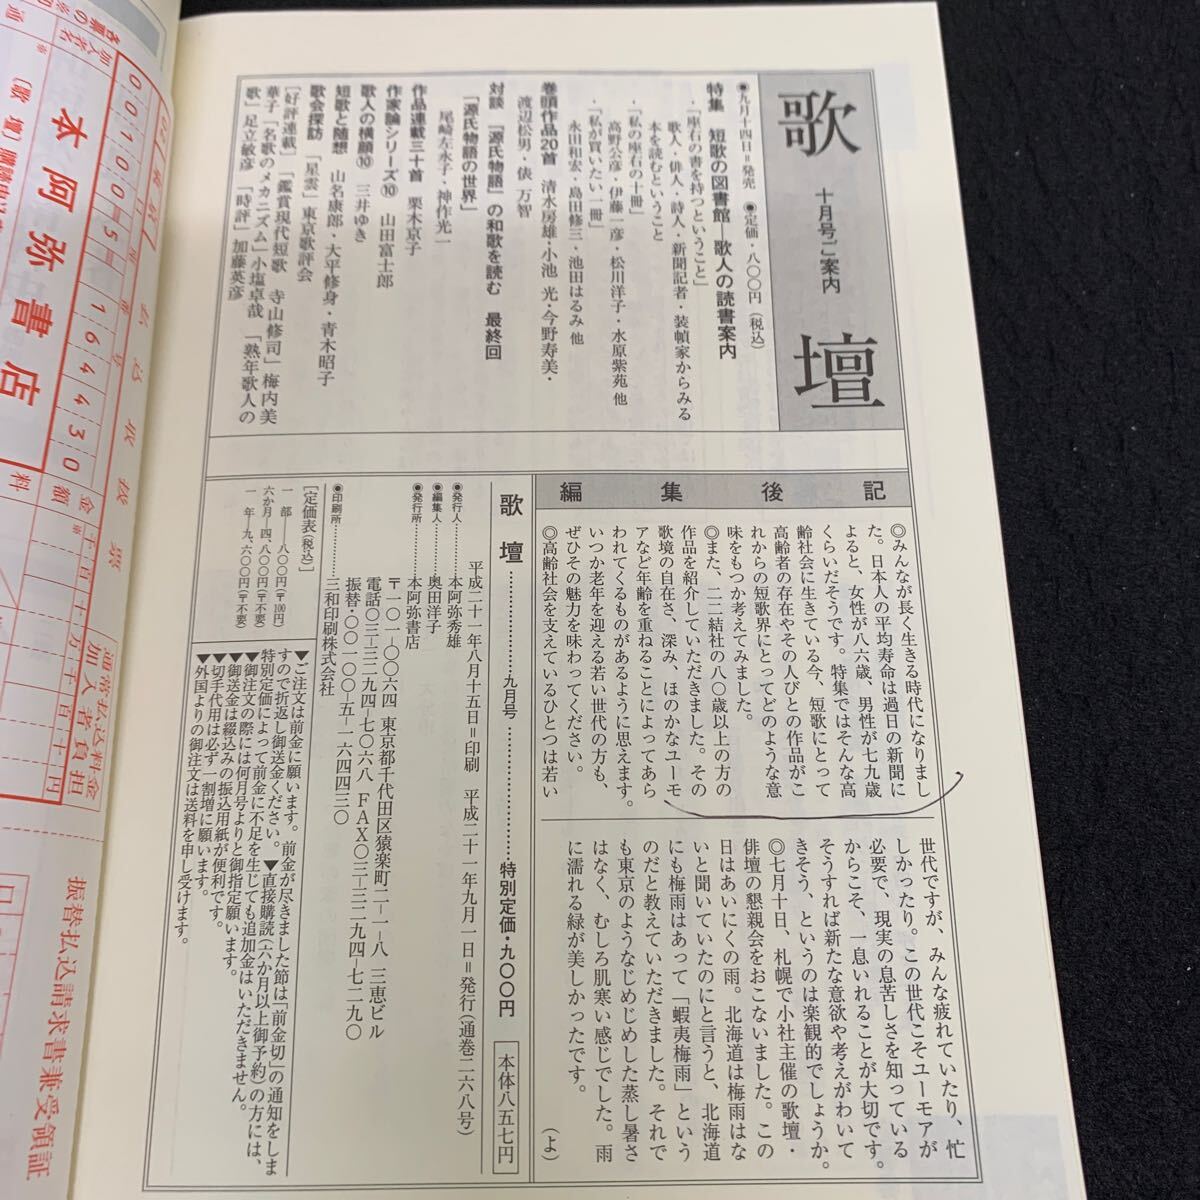 歌壇
十月号ご案内
◉九月十四日＝発売　◉定価・八〇〇円（税込）
特集　短歌の図書館―歌人の読書案内
・「座右の書を持つということ」
歌人・俳人・詩人・新聞記者・装幀家からみる
本を読むということ
・「私の座右の十冊」
高野公彦・伊藤一彦・松川洋子・水原紫苑 他
・「私が買いたい一冊」
永田和宏・島田修三・池田はるみ 他
巻頭作品20首　清水房雄・小池　光・今野寿美・
渡辺松男・俵　万智
対談　『源氏物語』の和歌を読む　最終回
「源氏物語の世界」
尾崎左永子・神作光一
作品連載三十首　栗木京子
作家論シリーズ⑩　山田富士郎
歌人の横顔⑩　三井ゆき
短歌と随想　山名康郎・大平修身・青木昭子
歌会探訪　「星雲」東京歌評会
［好評連載］　「鑑賞現代短歌　寺山修司」梅内美
華子「名歌のメカニズム」小塩卓哉　「熟年歌人の
歌」足立敏彦　「時評」加藤英彦
編集後記
◎みんなが長く生きる時代になりまし
た。日本人の平均寿命は過日の新聞に
よると、女性が八六歳、男性が七九歳
くらいだそうです。特集ではそんな高
齢社会に生きている今、短歌にとって
高齢者の存在やその人びとの作品がこ
れからの短歌界にとってどのような意
味をもつか考えてみました。
◎また、二二結社の八〇歳以上の方の
作品を紹介していただきました。その
歌境の自在さ、深み、ほのかなユーモ
アなど年齢を重ねることによってあら
われてくるものがあるように思えます。
いつか老年を迎える若い世代の方も、
ぜひその魅力を味わってください。
◎高齢社会を支えているひとつは若い
世代ですが、みんな疲れていたり、忙
しかったり。この世代こそユーモアが
必要で、現実の息苦しさを知っている
からこそ、一息いれることが大切です。
そうすれば新たな意欲や考えがわいて
きそう、というのは楽観的でしょうか。
◎七月十日、札幌で小社主催の歌壇・
俳壇の懇親会をおこないました。この
日はあいにくの雨。北海道は梅雨はな
いと聞いていたのにと言うと、北海道
にも梅雨はあって「蝦夷梅雨」という
のだと教えていただきました。それで
も東京のようなじめじめした蒸し暑さ
はなく、むしろ肌寒い感じでした。雨
に濡れる緑が美しかったです。
（よ）
歌　壇……………………九月号……………………特別定価・九〇〇円　本体八五七円
平成二十一年八月十五日＝印刷　平成二十一年九月一日＝発行（通巻二六八号）
◉発行人…………本阿弥秀雄
◉編集人…………奥田洋子
◉発行所…………本阿弥書店
〒一〇一－〇〇六四　東京都千代田区猿楽町二－一－八　三恵ビル
電話〇三－三二九四－七〇六八　FAX〇三－三二九四－七二九〇
振替・〇〇一〇〇－五－一六四四三〇
◉印刷所…………三和印刷株式会社
［定価表（税込）］
一　部―八〇〇円（〒100円）
六か月―四、八〇〇円（〒不要）
一　年―九、六〇〇円（〒不要）
▼ご注文は前金に願います。前金が尽きました節は「前金切」の通知をしま
すので折返し御送金ください。▼直接購読（六か月以上御予約）の方には、
特別定価によって前金に不足を生じても追加金はいただきません。
▼御注文の際には何月号よりと御指定願います。
▼御送金は綴込みの振込用紙が便利です。
▼切手代用は必ず一割増に願います。
▼外国よりの御注文は送料を申し受けます。
00100＝5＝164430
本阿弥書店
加入者名
金額
千百十万千百十円
料
通常払込料金
加入者負担
振替払込請求書兼受領証